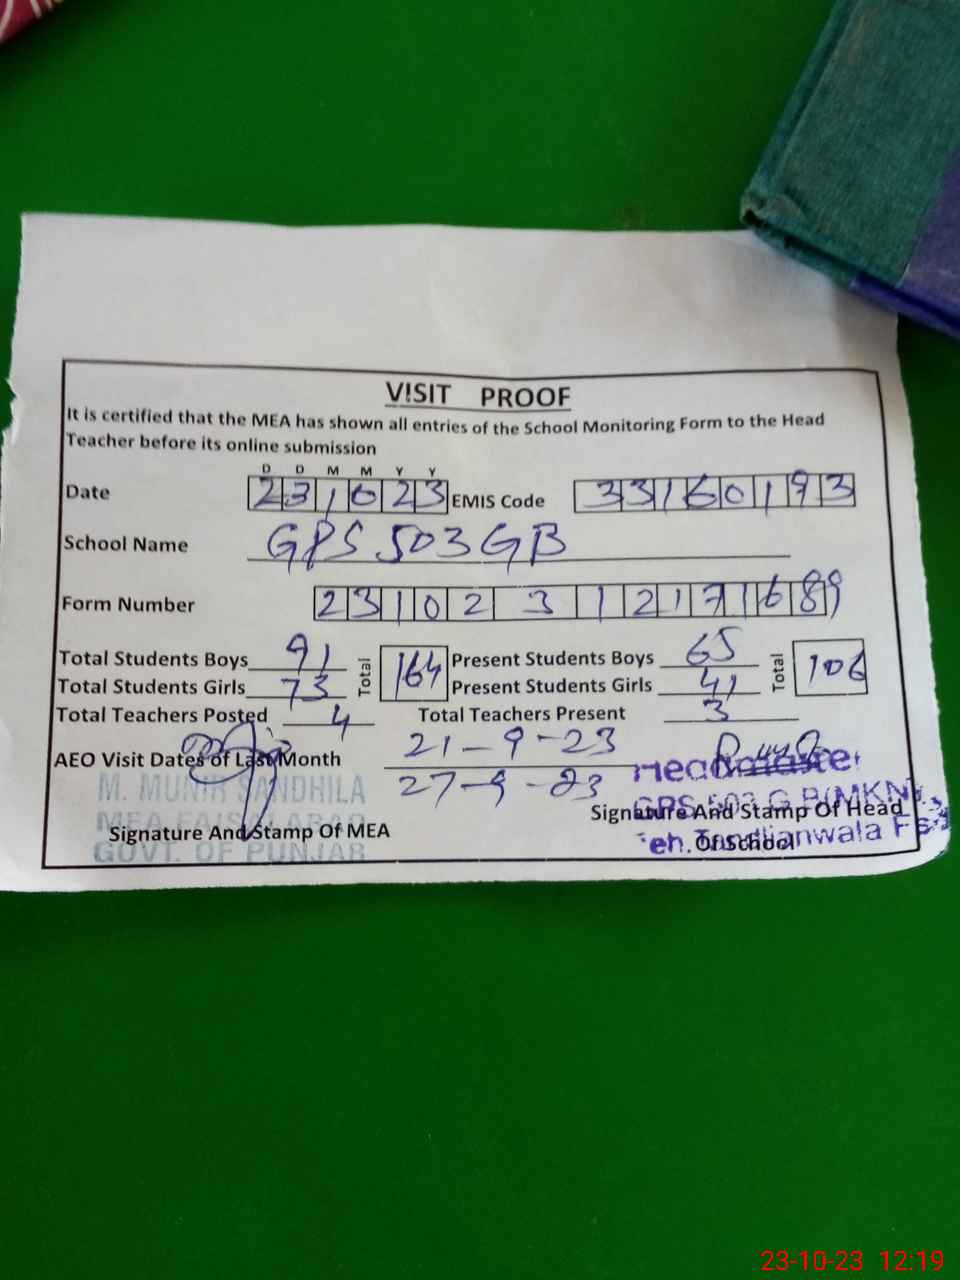 VISIT PROOF
It is certified that the MEA has shown all entries of the School Monitoring Form to the Head
Teacher before its online submission
D D M M Y Y
Date 231023 EMIS Code 33160193
School Name GPS 503 GB
Form Number 23102312171689
Total Students Boys 91 Total 164 Present Students Boys 65 Total 106
Total Students Girls 73 Present Students Girls 41
Total Teachers Posted 4 Total Teachers Present 3
AEO Visit Dates of Last Month 21-9-23
27-9-23
M. MUNIR SANDHILA
MEA FAISALABAD
GOVT. OF PUNJAB
Signature And Stamp Of MEA
Headmaster
GPS 503 G.B (MKN)
Teh. Tandlianwala
Signature And Stamp Of Head
Of School
23-10-23 12:19